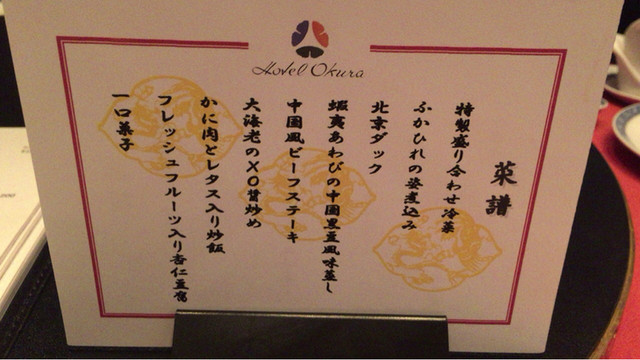 Hotel Okura
菜譜
特製盛り合わせ冷菜
ふかひれの姿煮込み
北京ダック
蝦夷あわびの中国黒豆風味蒸し
中国風ビーフステーキ
大海老のXO醤炒め
かに肉とレタス入り炒飯
フレッシュフルーツ入り杏仁豆腐
一口菓子